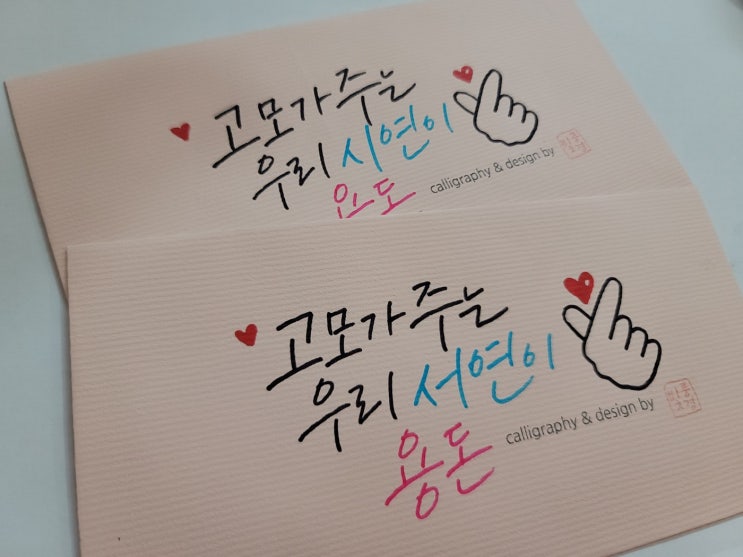 고모가 주는
우리 시연이
용돈
calligraphy & design by
고모가 주는
우리 서연이
용돈
calligraphy & design by